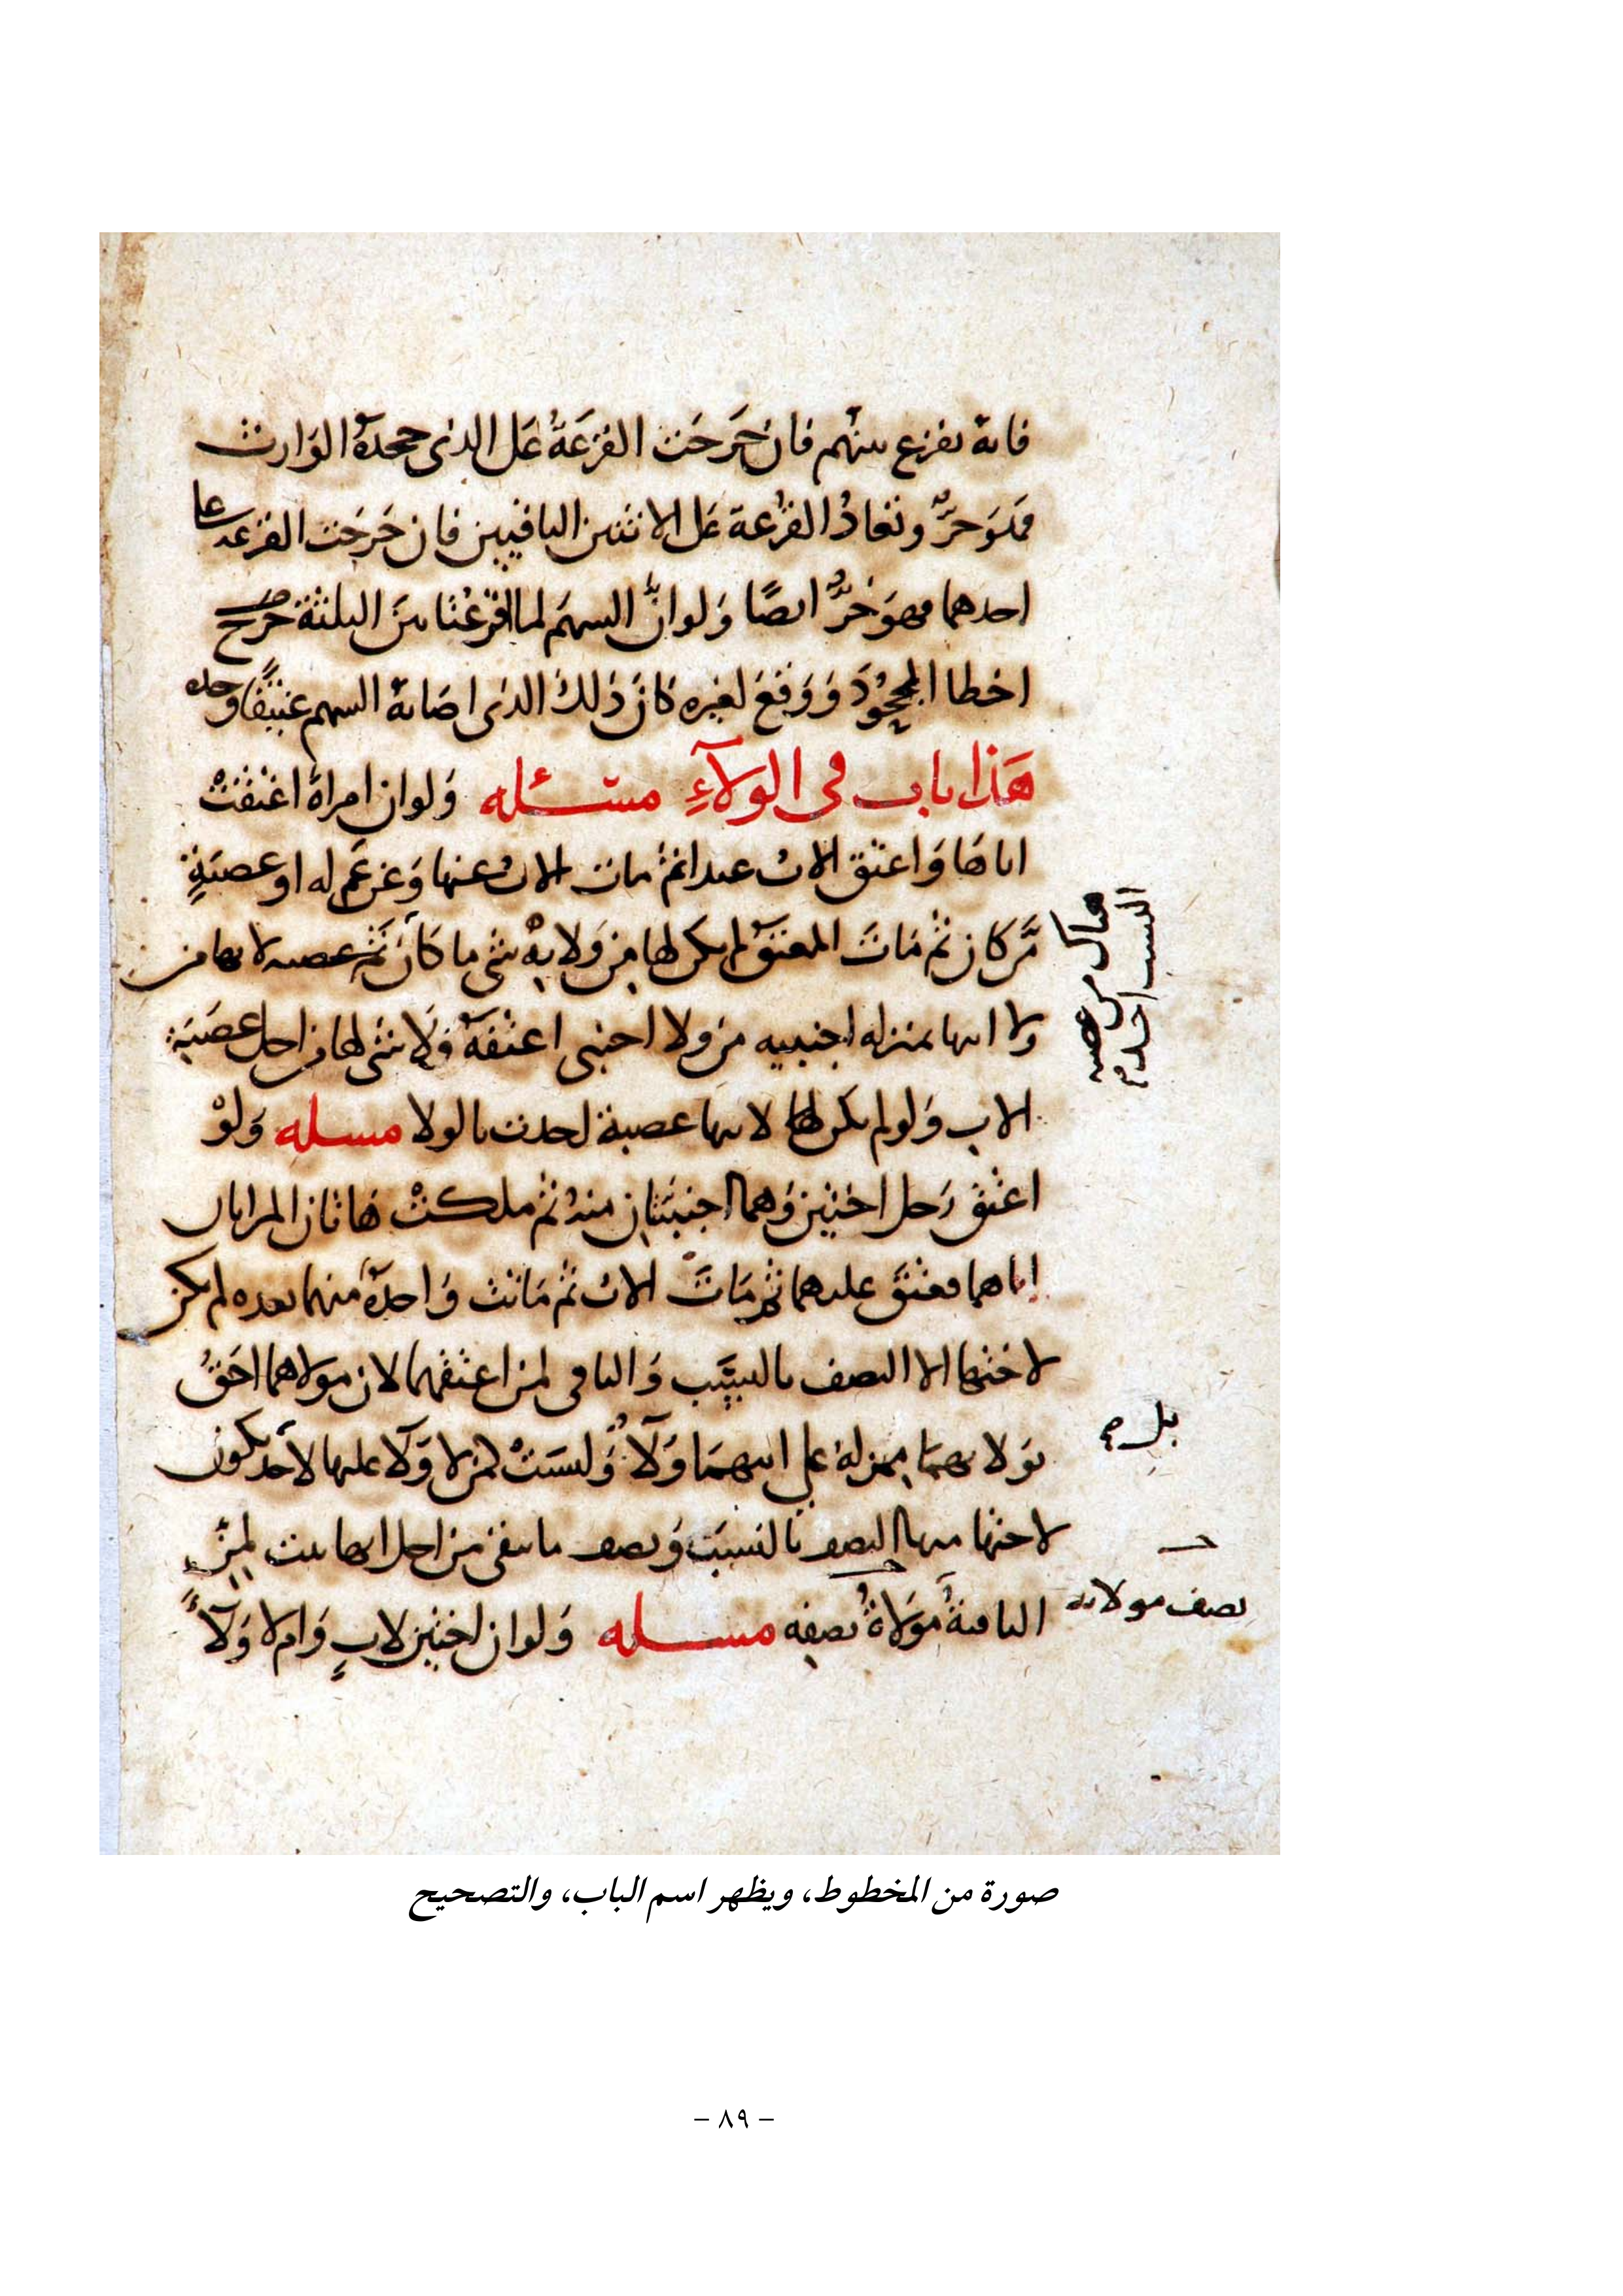 فانه يقرع بينهم فان خَرجَت القرعَةُ عَلى الذى جحدَهُ الوَارث
فهُوَ حرٌّ وتعَادُ القُرعة عَلى الاثنين الباقيين فان خَرجَت القرعة على
احدهما فهوَ حُرٌّ ايضًا وَلو انَّ السهمَ لما اقرَعْنا بينَ الثلثة خرج
اخطا المجحُوْدَ وَوَقعَ لغيره كانَ ذلكَ الذى اصَابهُ السهم عتيقًا وحده
هَذا باب فى الولآءِ مسئله وَلو ان امراةً اعتَقتْ
اباهَا وَاعتق الابُ عبدا ثمّ مات الابُ عنها وَعن عَم له او عصَبَةٍ
مّن كان ثمّ مَاتَ المعتَق لم يكن لها من وَلايهِ شى ما كانَ ثمّ عصبه لابيها من
ولا ابيها بمنزله اجنبيه من ولا اجنبى اعتقهُ فلا شى لها من اجل عصَبَة
الاب وَلو لم يكن لها لابيها عصبة لحدث بالولا مسئله وَلوْ
اعتق رَجل اختين وَهما اجنبيتان منهُ ثم ملكتْ هَاتان المراتان
اباهما فعتقَ عليهما ثم مَاتَ الابُ ثم مَاتت وَاحدةٌ منهما بعده لم يكن
لاختها الا النصف بالنسَب وَالباقى لمن اعتقهما لان مولاهما احَقُّ
بوَلايهما بمنزلهِ على ابيهمَا وَلآءٌ وَليسَتْ لمن لا وَلآ عليها لاحد يكون
لاختها منها النصف بالنسَبَ وَنصف ما بقى من اجل ابها بنت لمن
الباقيةُ مَوْلاةُ نصفِه مسئله وَلو ان اختين لابٍ وَام لا وَلآءً
هناك من عصبه
النسب احدم
بل
نصف مولاته
صورة من المخطوط، ويظهر اسم الباب، والتصحيح
– ٨٩ –